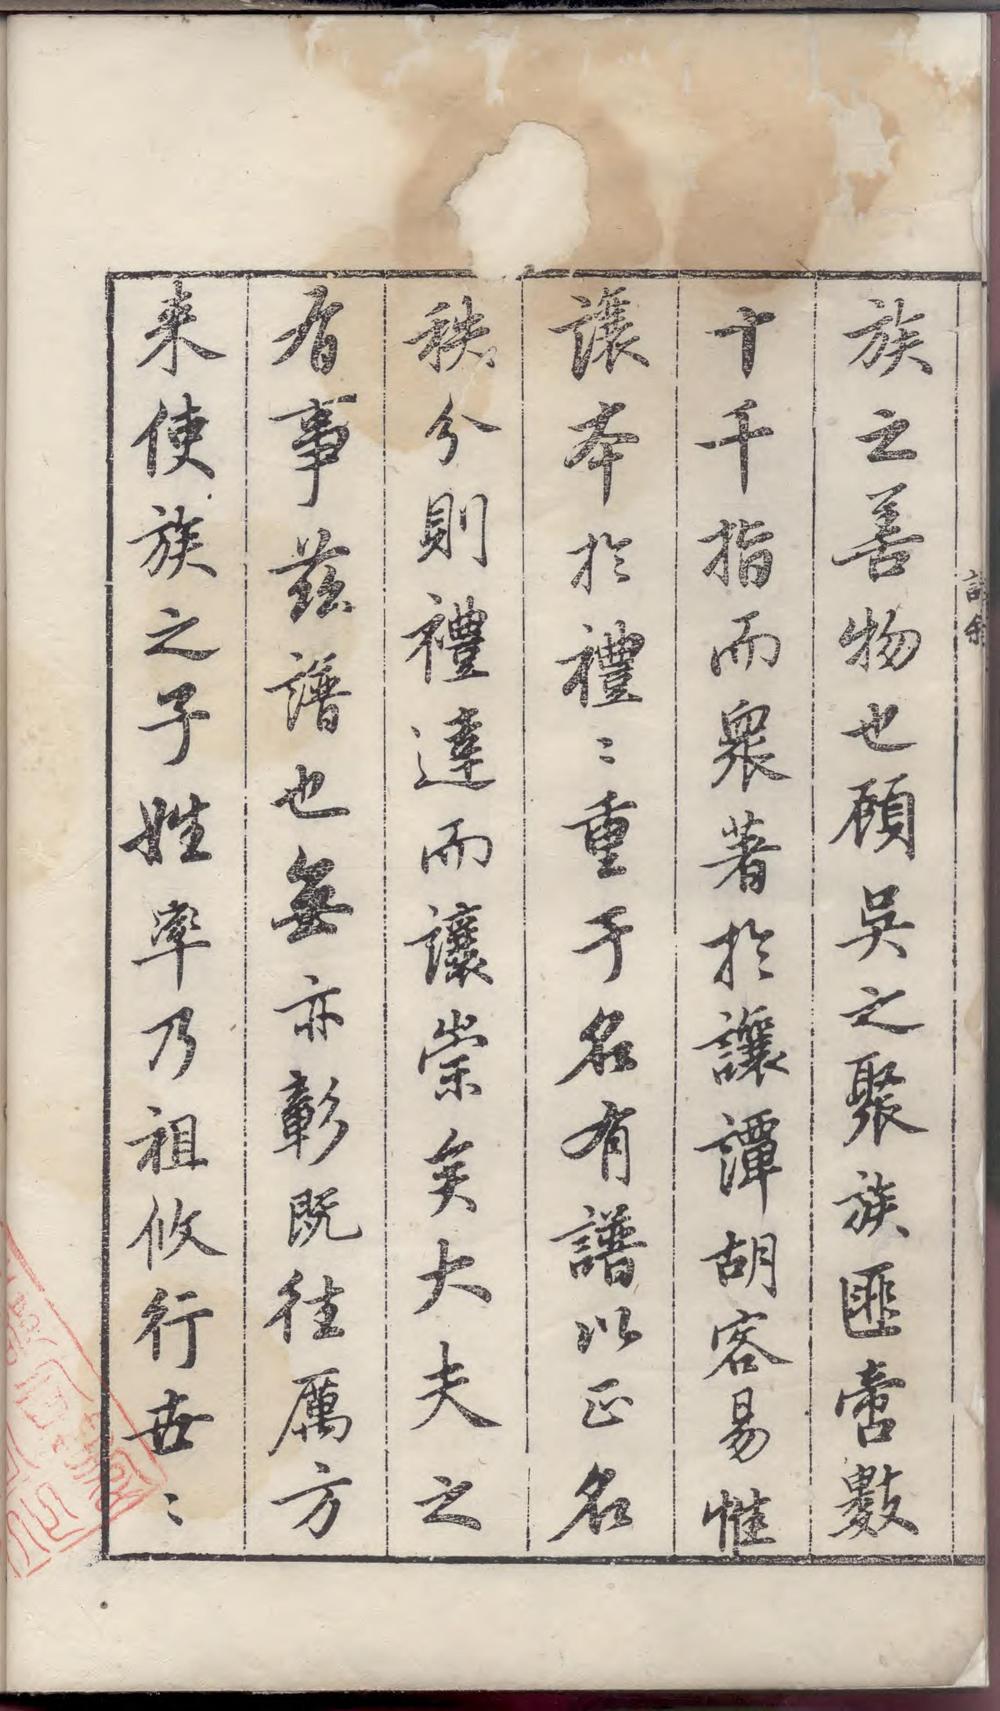 族之善物也顧吳之聚族匪啻數
十千指而衆著於讓譚胡容易惟
讓本於禮〻重于名有譜以正名
秩分則禮達而讓崇矣大夫之
有事兹譜也無亦彰既往厲方
来使族之子姓率乃祖攸行世〻